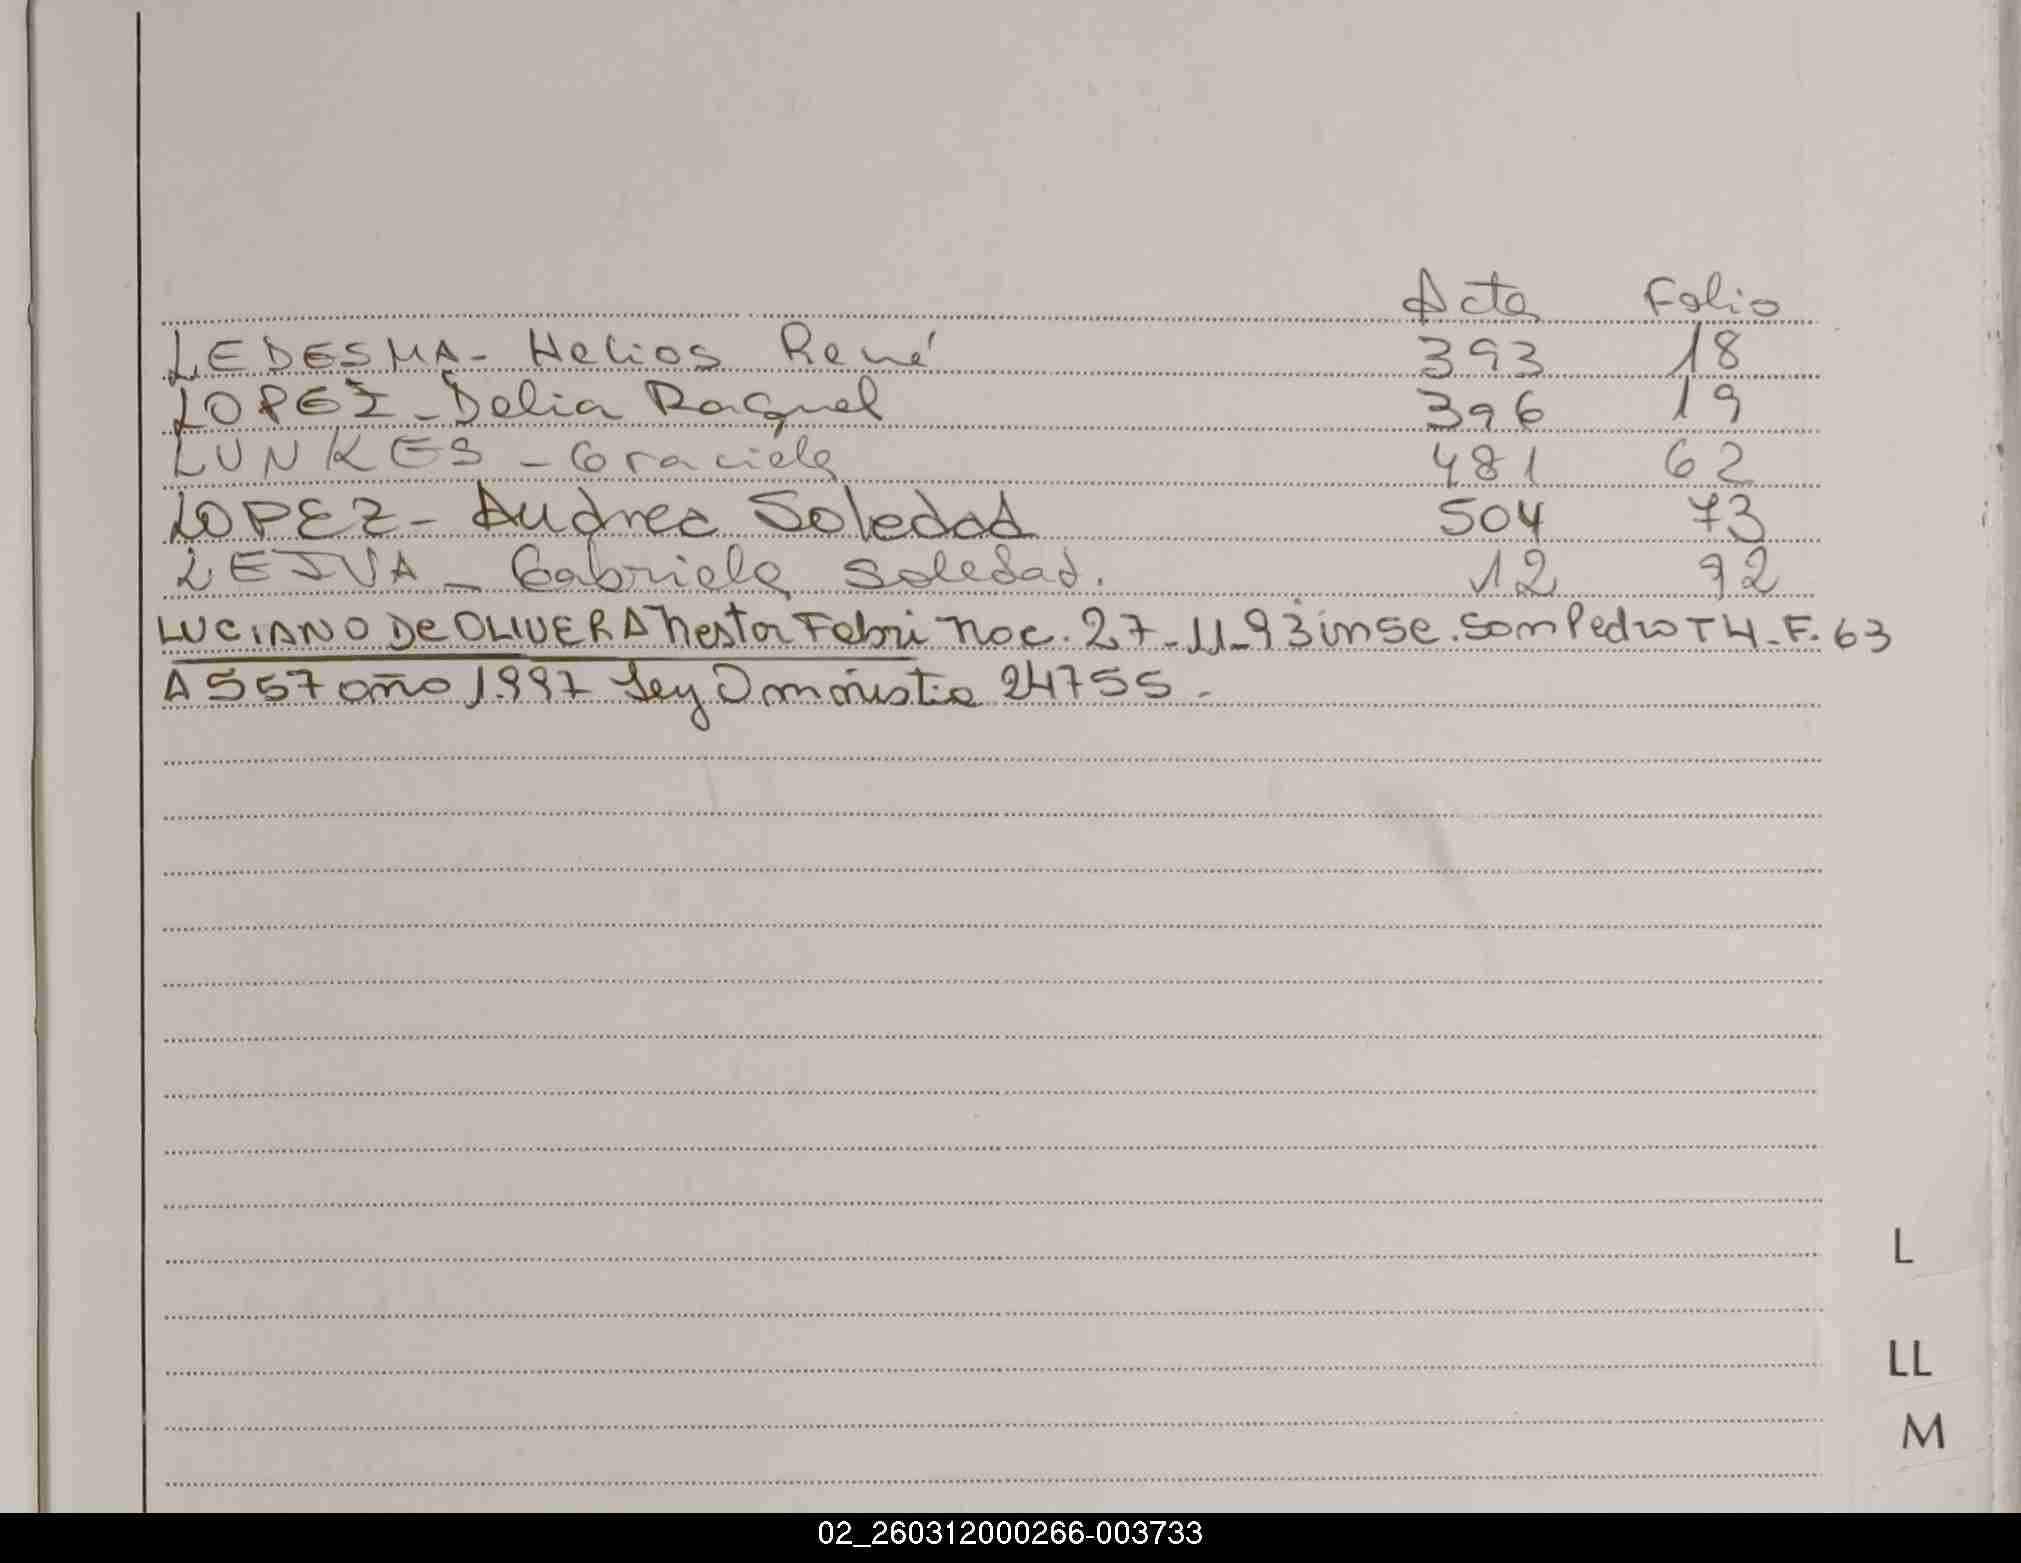 Acta Folio
LEDESMA - Helios René 393 18
LOPEZ - Delia Raquel 396 19
LUNKES - Graciela 481 62
LOPEZ - Andrea Soledad 504 73
LEIVA - Gabriela Soledad. 12 92
LUCIANO De OLIVERA Nestor Fabri Nac. 27-11-93 inse. San Pedro T4-F. 63
A 557 año 1997 Ley Dministia 24755.
L
LL
M
02_260312000266-003733